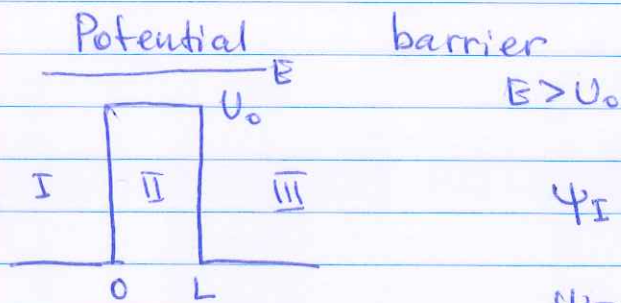 Potential barrier
E
E > U₀
U₀
I II III
Ψ_I
0 L